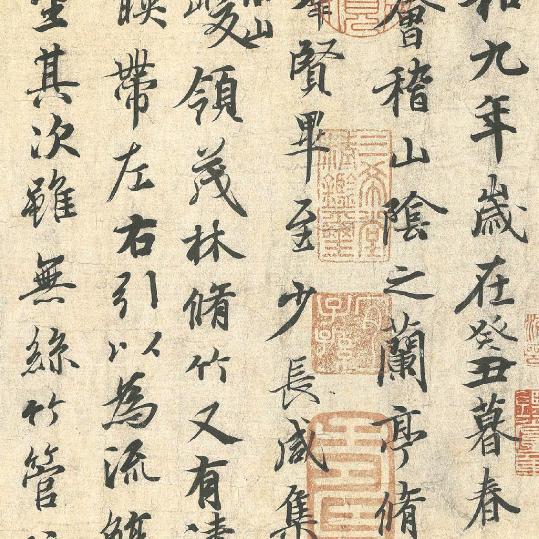 和九年歲在癸丑暮春
會稽山陰之蘭亭脩
羣賢畢至少長咸集
山
峻領茂林脩竹又有清
映帶左右引以為流觴
坐其次雖無絲竹管
三希堂
精鑑璽
宜子孫